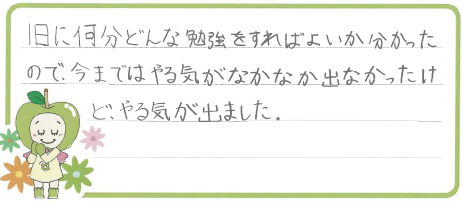 1日に何分どんな勉強をすればよいか分かった
ので、今まではやる気がなかなか出なかったけ
ど、やる気が出ました。